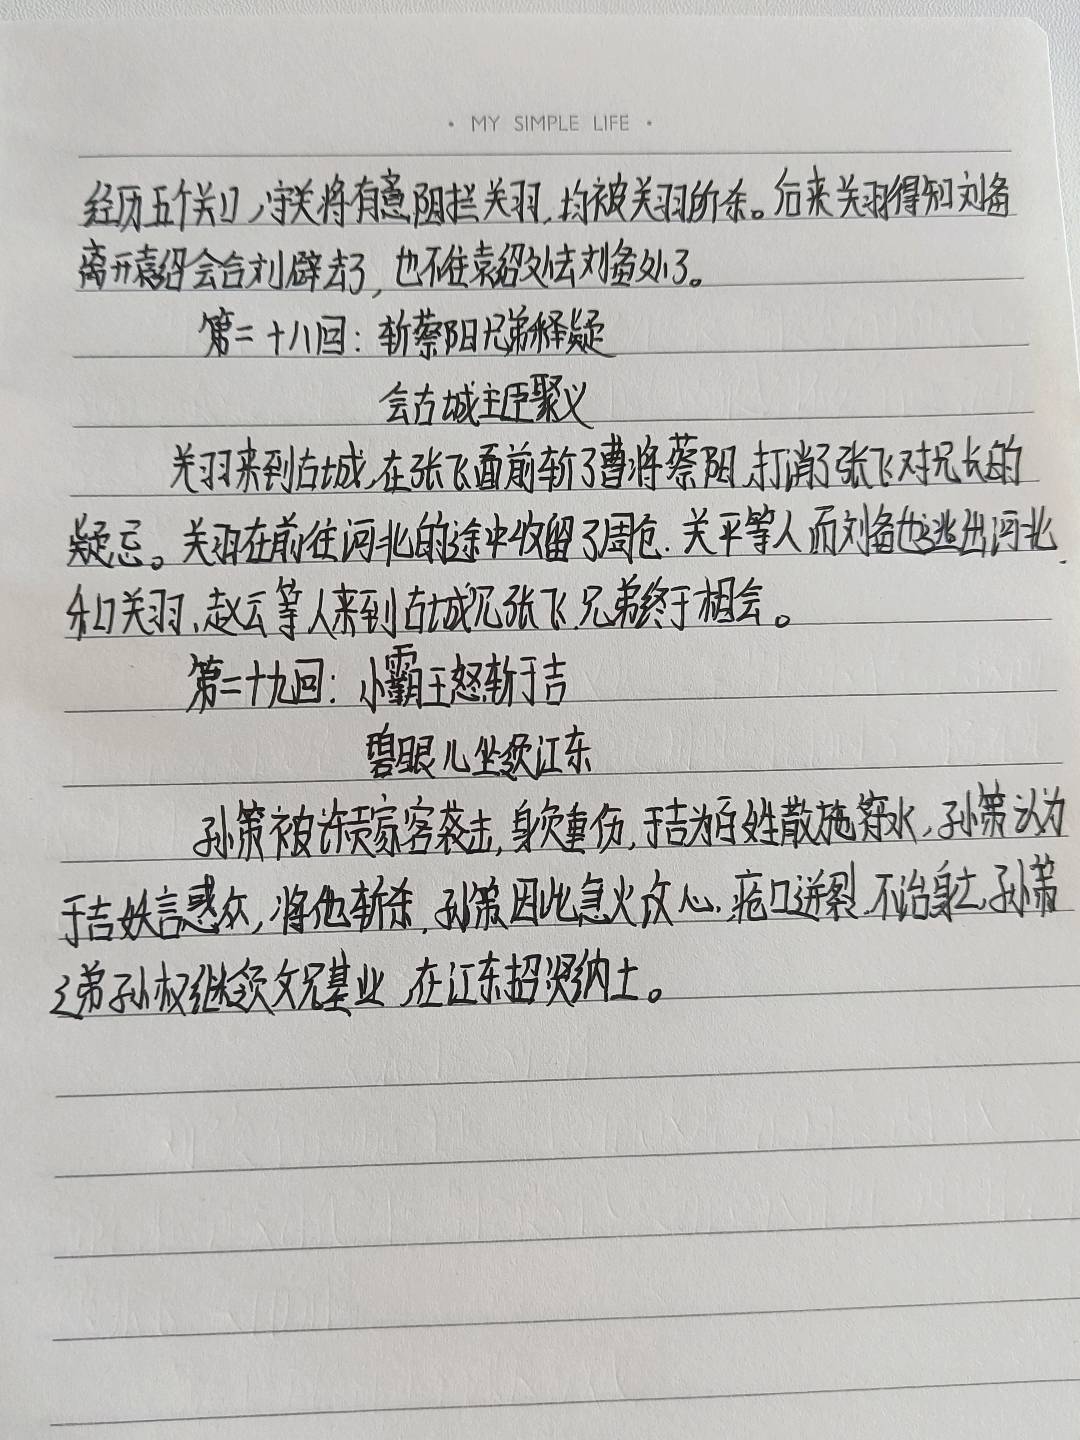 · MY SIMPLE LIFE ·
经历五个关口,守关将有意阻拦关羽,均被关羽所杀。后来关羽得知刘备
离开袁绍会合刘辟去了,也不往袁绍处去刘备处了。
第二十八回:斩蔡阳兄弟释疑
会古城主臣聚义
关羽来到古城,在张飞面前斩了曹将蔡阳,打消了张飞对兄长的
疑忌。关羽在前往河北的途中收留了周仓、关平等人而刘备也逃出河北,
和关羽、赵云等人来到古城见张飞,兄弟终于相会。
第二十九回:小霸王怒斩于吉
碧眼儿坐领江东
孙策被许贡家客袭击,身负重伤,于吉为百姓散施符水,孙策认为
于吉妖言惑众,将他斩杀,孙策因此急火攻心,疮口迸裂,不治身亡,孙策
之弟孙权继领父兄基业,在江东招贤纳士。